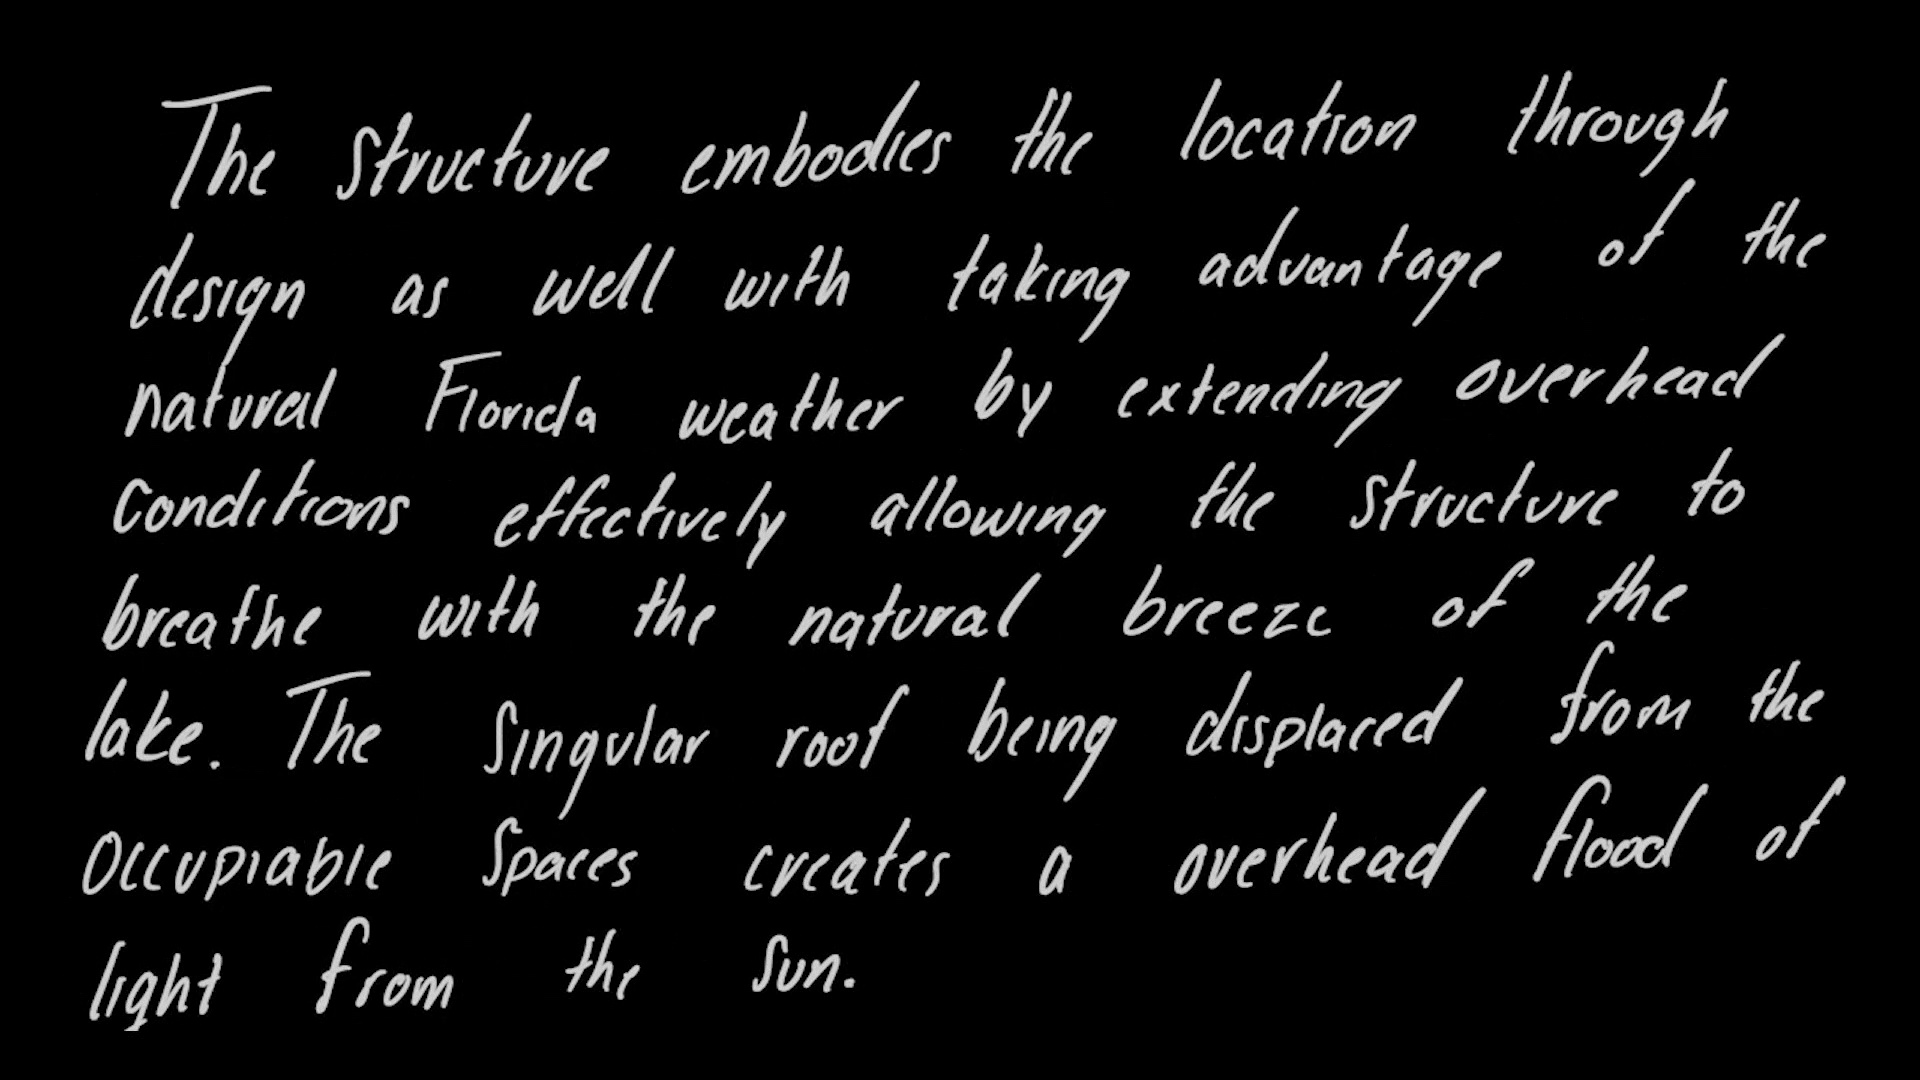 The structure embodies the location through
design as well with taking advantage of the
natural Florida weather by extending overhead
conditions effectively allowing the structure to
breathe with the natural breeze of the
lake. The singular roof being displaced from the
occupiable spaces creates a overhead flood of
light from the sun.